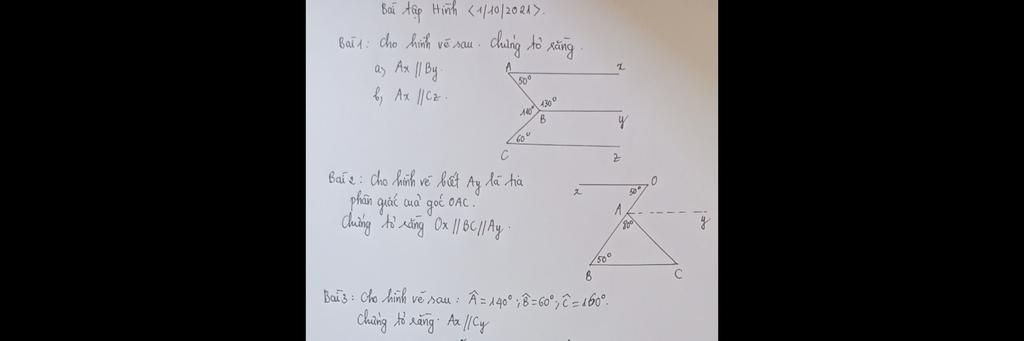 Bài tập Hình <1/10/2021>.
Bài 1: Cho hình vẽ sau. Chứng tỏ rằng.
a, Ax // By.
b, Ax // Cz.
A
x
50°
130°
140°
B
y
60°
C
z
Bài 2: Cho hình vẽ biết Ay là tia
phân giác của góc OAC.
Chứng tỏ rằng Ox // BC // Ay.
x
50°
O
A
y
80°
50°
B
C
Bài 3: Cho hình vẽ sau: Â=140°; B̂=60°; Ĉ=160°.
Chứng tỏ rằng. Ax // Cy